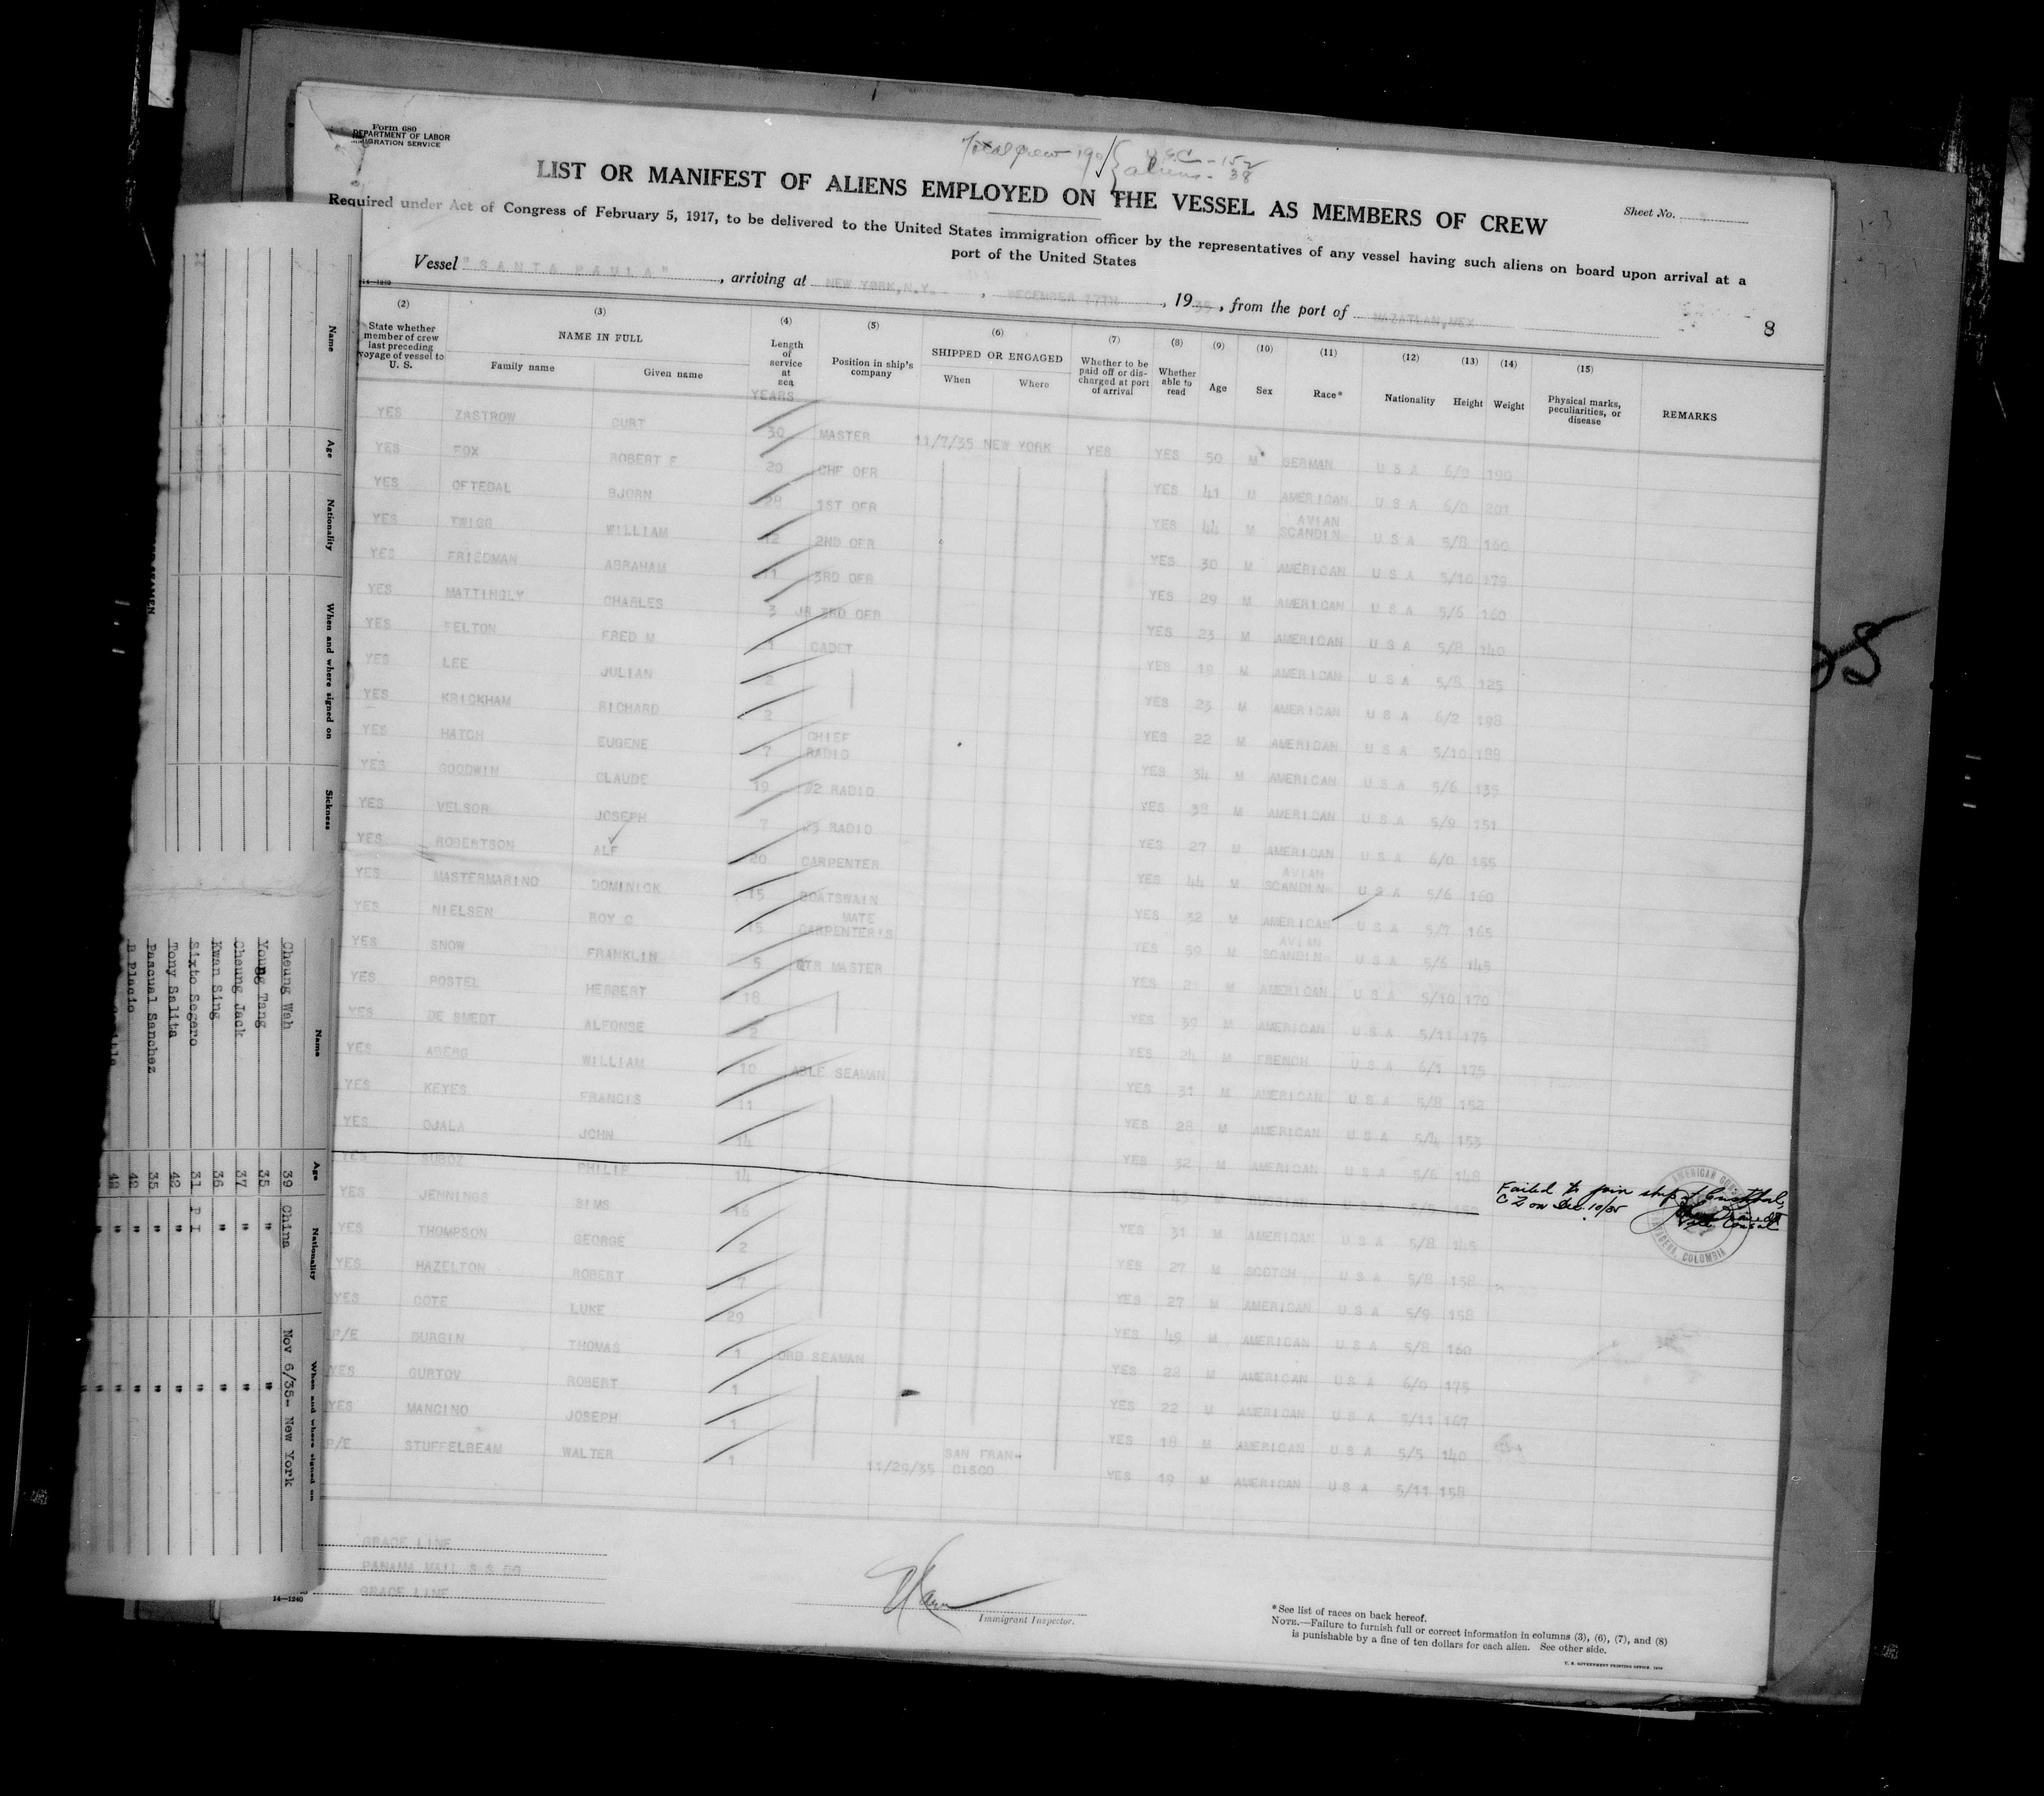 Form 680
DEPARTMENT OF LABOR
IMMIGRATION SERVICE
Total crew 190 { U.S.C. - 152
aliens - 38
LIST OR MANIFEST OF ALIENS EMPLOYED ON THE VESSEL AS MEMBERS OF CREW
Sheet No.
Required under Act of Congress of February 5, 1917, to be delivered to the United States immigration officer by the representatives of any vessel having such aliens on board upon arrival at a
port of the United States
Vessel "SANTA PAULA", arriving at NEW YORK, N.Y., DECEMBER 17TH, 1935, from the port of MAZATLAN, MEX
8
14—1240
(2) (3) (4) (5) (6) (7) (8) (9) (10) (11) (12) (13) (14) (15)
State whether member of crew last preceding voyage of vessel to U. S.
NAME IN FULL
Family name Given name
Length of service at sea
YEARS
Position in ship's company
SHIPPED OR ENGAGED
When Where
Whether to be paid off or discharged at port of arrival
Whether able to read
Age Sex Race* Nationality Height Weight
Physical marks, peculiarities, or disease
REMARKS
YES ZASTROW CURT 30 MASTER 11/7/35 NEW YORK YES YES 50 M GERMAN U S A 6/0 190
YES FOX ROBERT F 20 CHF OFR YES 41 M AMERICAN U S A 6/0 201
YES OFTEDAL BJORN 28 1ST OFR YES 44 M SCANDINAVIAN U S A 5/8 160
YES TWIGG WILLIAM 12 2ND OFR YES 30 M AMERICAN U S A 5/10 179
YES FRIEDMAN ABRAHAM 11 3RD OFR YES 29 M AMERICAN U S A 5/6 160
YES MATTINGLY CHARLES 3 JR 3RD OFR YES 23 M AMERICAN U S A 5/8 140
YES FELTON FRED M 1 CADET YES 19 M AMERICAN U S A 5/8 125
YES LEE JULIAN 2 YES 23 M AMERICAN U S A 6/2 198
YES KRICKHAM RICHARD 2 YES 22 M AMERICAN U S A 5/10 188
YES HATCH EUGENE 7 CHIEF RADIO YES 34 M AMERICAN U S A 5/6 135
YES GOODWIN CLAUDE 19 #2 RADIO YES 38 M AMERICAN U S A 5/9 151
YES VELSOR JOSEPH 7 #3 RADIO YES 27 M AMERICAN U S A 6/0 155
YES ROBERTSON ALF 20 CARPENTER YES 44 M SCANDINAVIAN U S A 5/6 160
YES MASTERMARINO DOMINICK 15 BOATSWAIN YES 32 M AMERICAN U S A 5/7 165
YES NIELSEN ROY C 15 CARPENTER'S MATE YES 59 M SCANDINAVIAN U S A 5/6 145
YES SNOW FRANKLIN 5 QTR MASTER YES 21 M AMERICAN U S A 5/10 170
YES POSTEL HERBERT 18 YES 39 M AMERICAN U S A 5/11 175
YES DE SMEDT ALFONSE 2 YES 24 M FRENCH U S A 6/1 175
YES ABERG WILLIAM 10 ABLE SEAMAN YES 31 M AMERICAN U S A 5/8 152
YES KEYES FRANCIS 11 YES 28 M AMERICAN U S A 5/4 153
YES OJALA JOHN 14 YES 32 M AMERICAN U S A 5/6 148
YES PHILIP 14 YES 43 M RUSSIAN U S A
Failed to join ship at Cristobal,
C Z on Dec. 10/35
Vice Consul
AMERICAN CONSULATE
COLOMBIA
YES JENNINGS SIMS 16 YES 31 M AMERICAN U S A 5/8 145
YES THOMPSON GEORGE 2 YES 27 M SCOTCH U S A 5/8 158
YES HAZELTON ROBERT 7 YES 27 M AMERICAN U S A 5/9 158
YES COTE LUKE 29 YES 49 M AMERICAN U S A 5/8 160
P/E DURGIN THOMAS 1 ORD SEAMAN YES 22 M AMERICAN U S A 6/0 175
YES GURTOV ROBERT 1 YES 22 M AMERICAN U S A 5/11 167
YES MANCINO JOSEPH 1 YES 18 M AMERICAN U S A 5/5 140
P/E STUFFELBEAM WALTER 1 11/29/35 SAN FRAN-CISCO YES 19 M AMERICAN U S A 5/11 158
GRACE LINE
PANAMA MAIL S S CO
GRACE LINE
14—1240
Immigrant Inspector.
*See list of races on back hereof.
NOTE.—Failure to furnish full or correct information in columns (3), (6), (7), and (8)
is punishable by a fine of ten dollars for each alien. See other side.
U. S. GOVERNMENT PRINTING OFFICE
Name Age Nationality When and where signed on Sickness
Name Age Nationality When and where signed on
Cheung Wah 39 China Nov 6/35- New York
Young Tang 35 " "
Cheung Jack 37 " "
Kwan Sing 36 " "
Sixto Segero 31 P I "
Tony Salita 42 " "
Pascual Sanchez 35 " "
B Placio 42 " "
48 " "